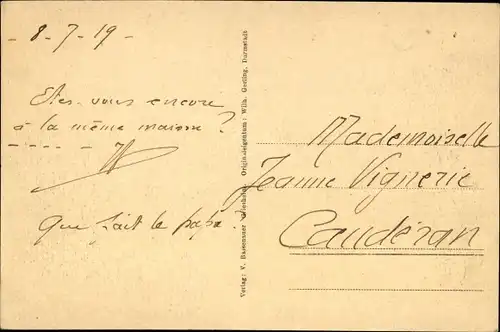 - 8 - 7 - 19 -
Etes-vous encore
à la même maison?
- - - - -
que fait le papa?
Verlag: V. Originaleigentum: Wilh. Gerling, Darmstadt
Mademoiselle
Jeanne Vignerie
Caudéran